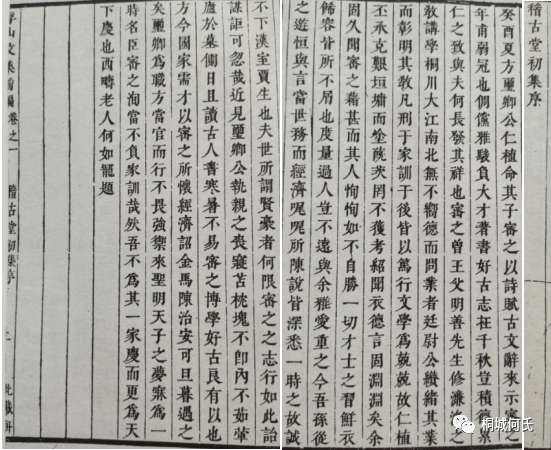 稽古堂初集序
癸酉夏方璽卿公仁植命其子審之以詩賦古文辭來示審之
年甫弱冠也倜儻雅駿負大才著書好古志在千秋豈積德絫
仁之致與夫何長發其祥也審之曾王父明善先生修濂洛之
敎講學桐川大江南北無不嚮德而問業者廷尉公纘緒其業
而彰明其敎凡刑于家訓于後皆以篤行文學為兢兢故仁植
丕承克艱垣墉而塗罔不獲考紹聞衣德言固淵淵矣余
固久聞審之藉甚而其人恂恂如不自勝一切才士之習鮮衣
飾容皆所不屑也度量過人豈不遠與余雅愛重之今吾孫從
之遊恒與言當世務而經濟呢呢所陳說皆深悉一時之故誠
不下漢室賈生也夫世所謂賢豪者何限審之之志行如此詒
謀詎可忽哉近見璽卿公執親之喪寢苫枕塊不卽內不茹葷
廬於墓側日且讀古人書寒暑不易審之博學好古良有以也
方今國家需才以審之所懷經濟詔金馬陳治安可旦暮遇之
矣璽卿為職方當官而行不畏強禦來聖明天子之夢寐為一
時名臣審之洵當不負家訓哉然吾不為其一家慶而更為天
下慶也西疇老人何如寵題
浮山文集前編卷之一 稽古堂初集序 上 此藏軒
桐城何氏